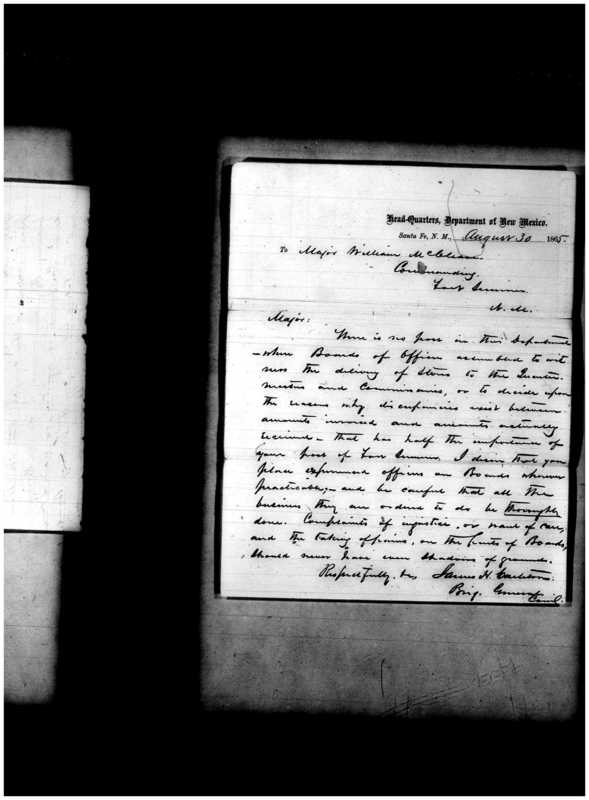 Head-Quarters, Department of New Mexico,
Santa Fe, N. M., August 30 1865.
To Major William McCleave
Commanding
Fort Sumner
N. M.
Major:
There is no post in this Department
- where Boards of Officers assembled to wit
ness the delivery of Stores to the Quarter-
masters and Commissaries, or to decide upon
the reasons why discrepancies exist between
amounts invoiced and amounts actually
received - that has half the importance of
your post of Fort Sumner. I desire that you
place experienced officers on Boards wherever
practicable, - and be careful that all the
business they are ordered to do be thoroughly
done. Complaints of injustice, or want of care,
and the taking of on the of Boards,
should never have even shadows of grounds.
Respectfully, James H. Carleton
Brig. General
Comd.